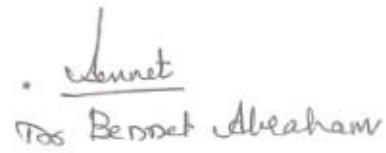 . Bennet
Dr Bennet Abraham